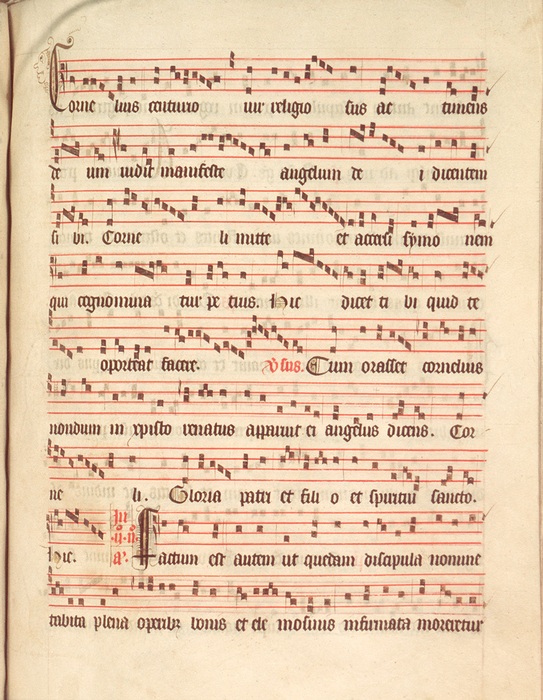 Corne lius centurio uir religio sus ac timens
de um uidit manifeste angelum de i dicentem
si bi. Corne li mitte et accersi symo nem
qui cognomina tur pe trus. Hic dicet ti bi quid te
oporteat facere. Vsus. Cum orasset cornelius
nondum in xpisto renatus apparuit ei angelus dicens. Cor
ne li. Gloria patri et fili o et spiritui sancto.
Hic. Factum est autem ut quedam discipula nomine
tabita plena operibz bonis et ele mosinis infirmata moreretur